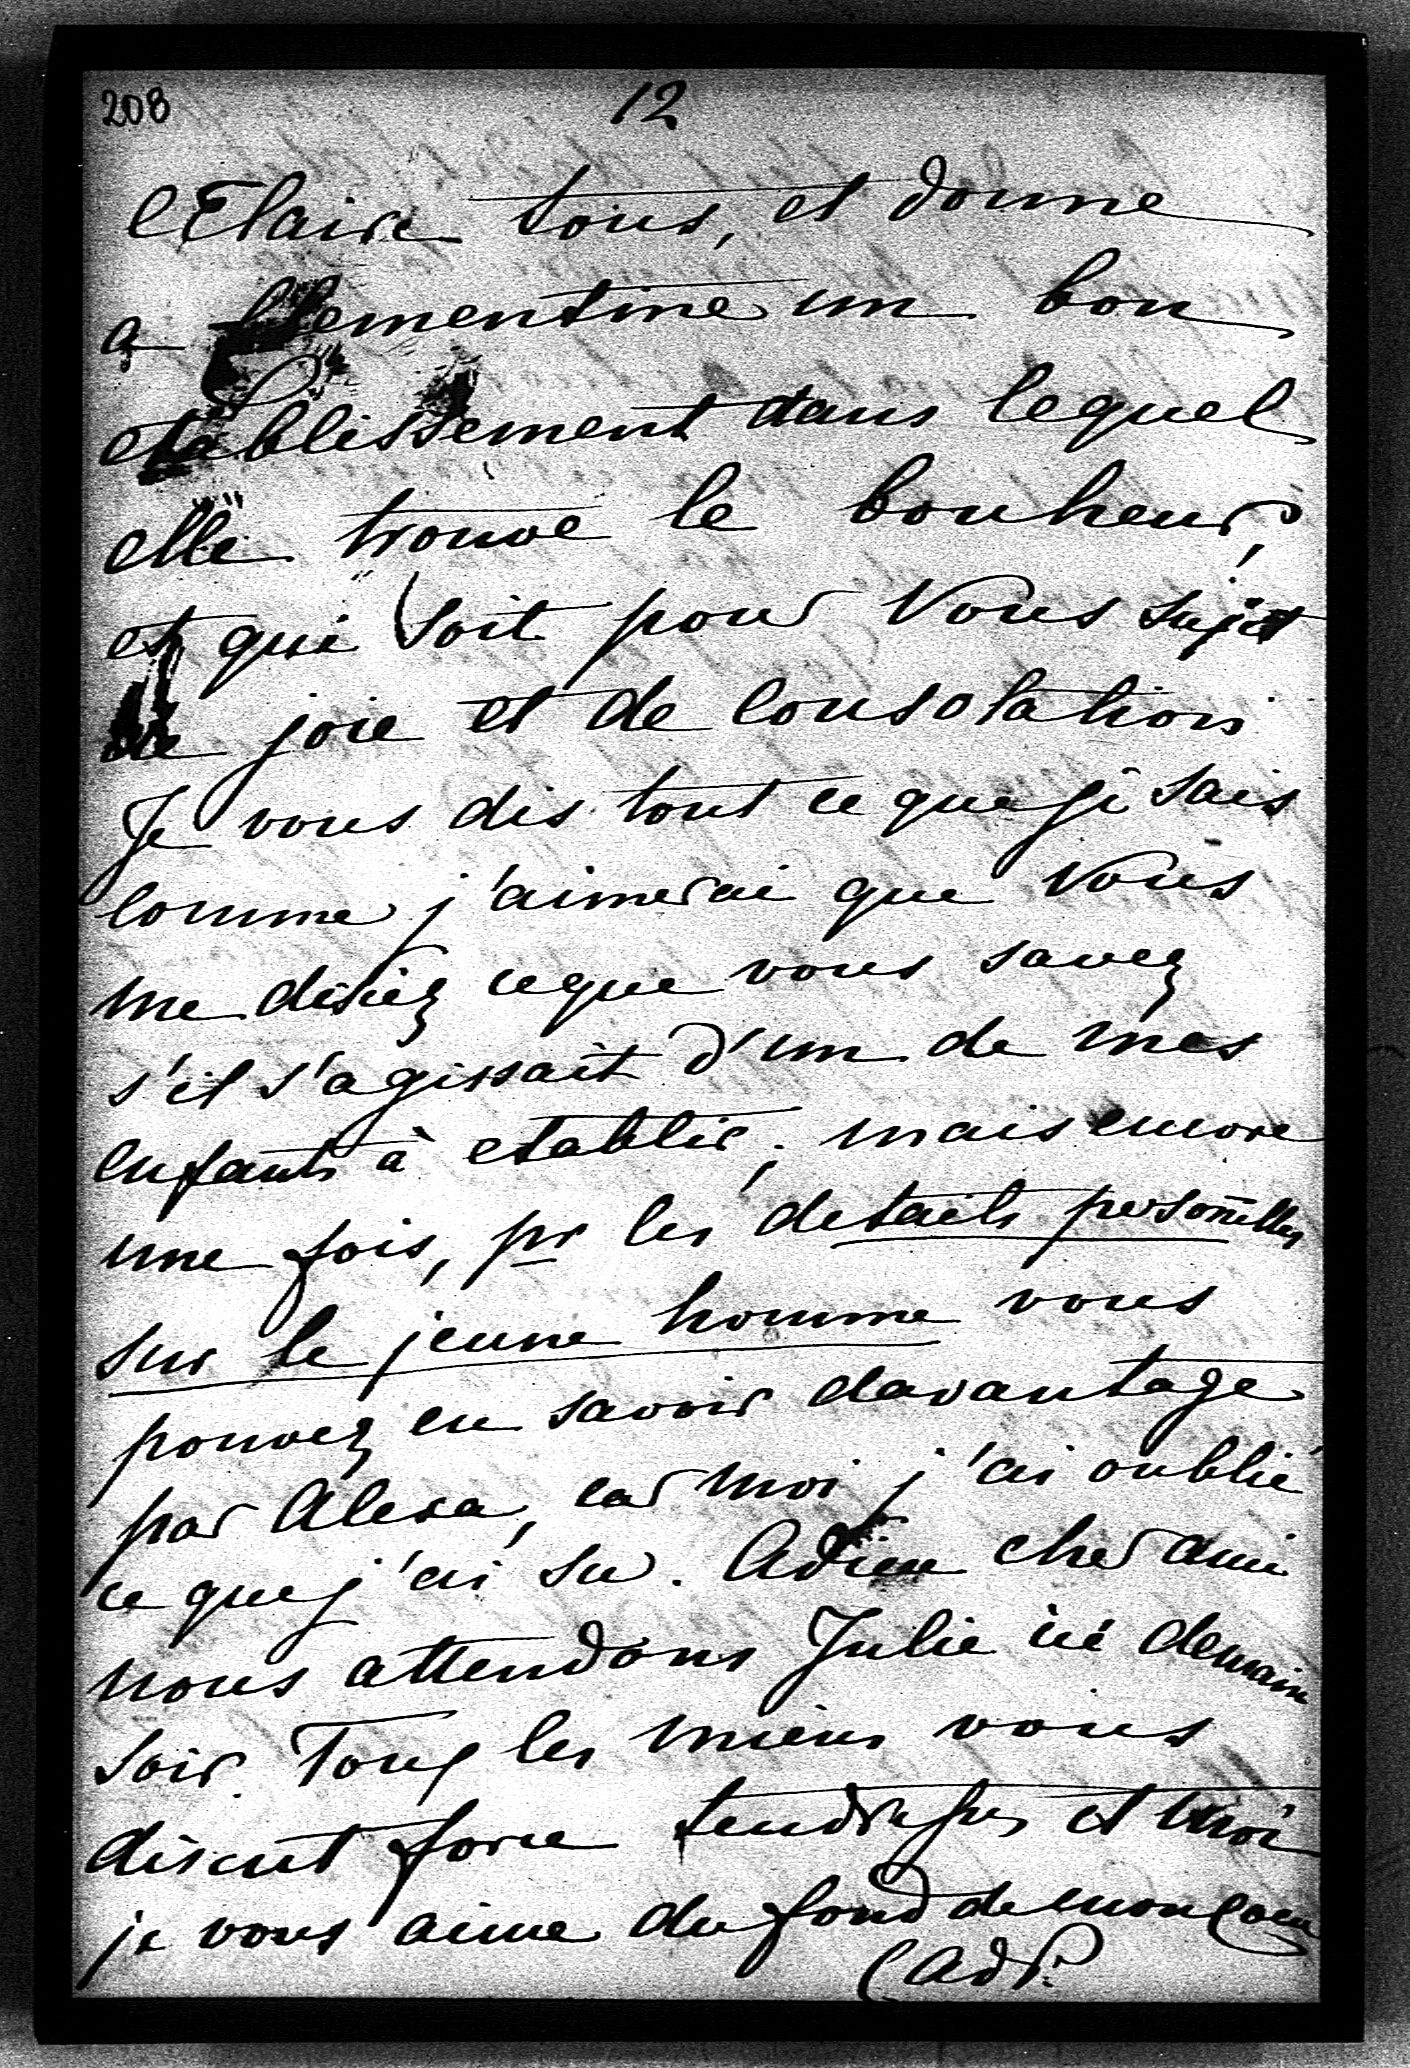 208
12
eclaire tous, et donne
a Clementine un bon
etablissement dans lequel
elle trouve le bonheur,
et qui soit pour Vous sujet
de joie et de Consolation
Je vous dis tout ce que je sais
Comme j'aimerai que Vous
me disiez ce que vous savez
s'il s'agissait d'un de mes
Enfants à etablir; mais encore
une fois, pr les details personnelles
sur le jeune homme vous
pouvez en savoir davantage
par Alexa, car moi j'ai oublié
ce que j'ai su. Adieu cher ami
nous attendons Julie ici demain
soir. Tous les miens vous
disent force tendresses et moi
je vous aime du fond de mon Coeur